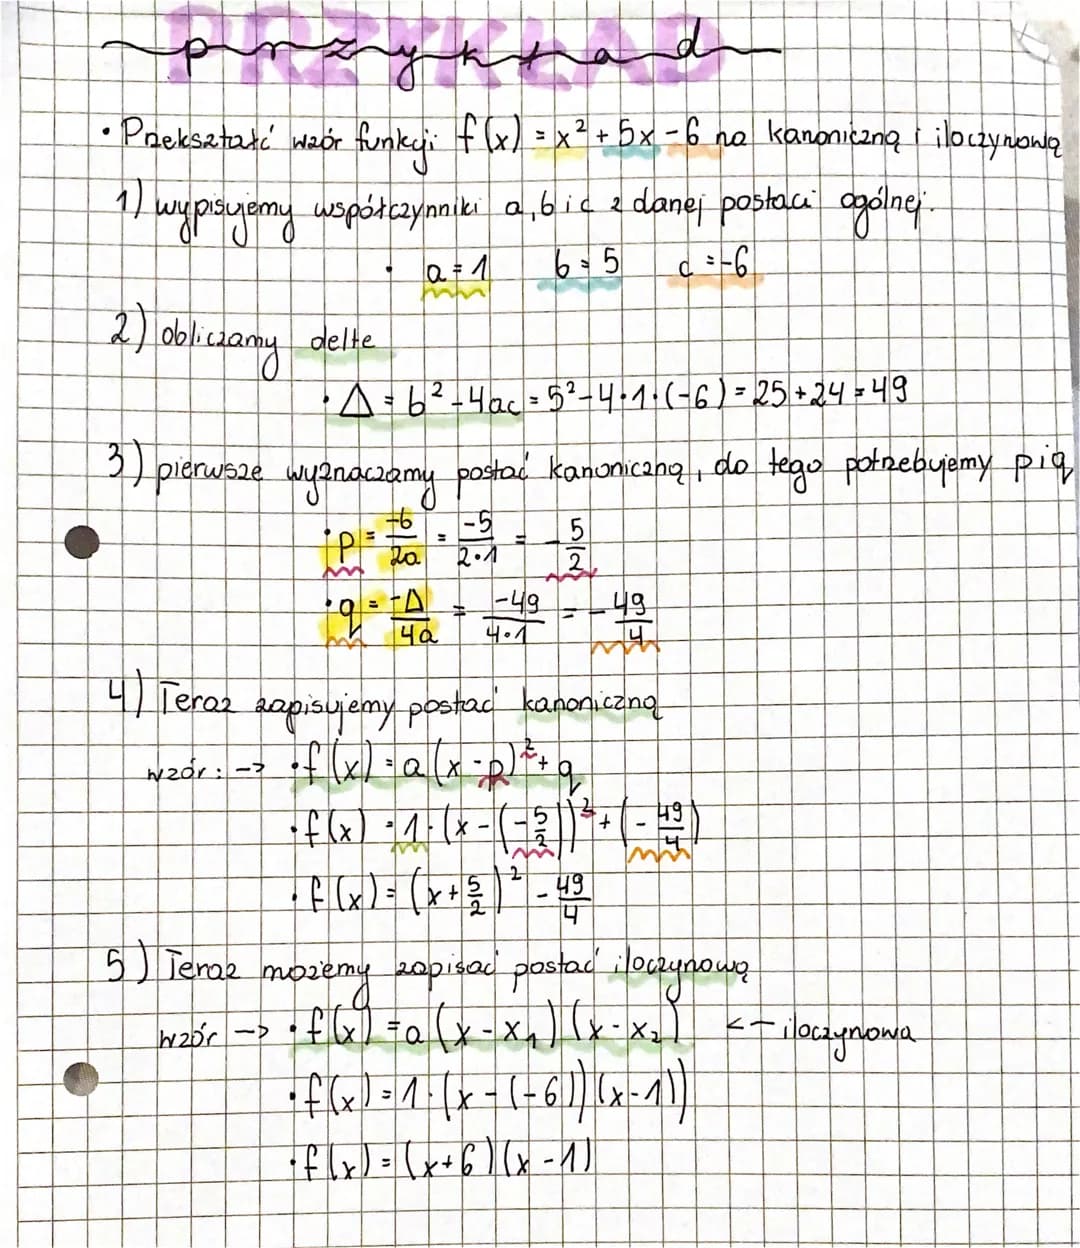 PRZYKŁAD
przykład
• Przekształć wzór funkcji f(x) = x² + 5x - 6 na kanoniczną i iloczynową
1) wypisujemy współczynniki a, b i c z danej postaci ogólnej.
• a = 1 b = 5 c = -6
2) obliczamy delte
• Δ = b² - 4ac = 5² - 4·1·(-6) = 25 + 24 = 49
3) pierwsze wyznaczamy postać kanoniczną, do tego potrzebujemy p i q
• p = -b/2a = -5/2·1 = -5/2
• q = -Δ/4a = -49/4·1 = -49/4
4) Teraz zapisujemy postać kanoniczną
wzór: -> • f(x) = a(x-p)² + q
• f(x) = 1·(x-(-5/2))² + (-49/4)
• f(x) = (x+5/2)² - 49/4
5) Teraz możemy zapisać postać iloczynową
wzór -> • f(x) = a(x-x₁)(x-x₂) <- iloczynowa
• f(x) = 1·(x-(-6))(x-1))
• f(x) = (x+6)(x-1)